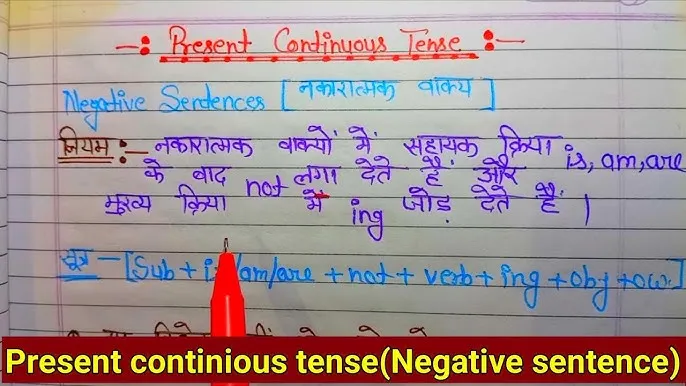 -: Present Continuous Tense :-
Negative Sentences [नकारात्मक वाक्य]
नियम :- नकारात्मक वाक्यों में सहायक क्रिया is, am, are
के बाद not लगा देते हैं और
मुख्य क्रिया में ing जोड़ देते हैं ।
सूत्र - [Sub + is/am/are + not + verb + ing + obj + ow.]
Present continious tense(Negative sentence)